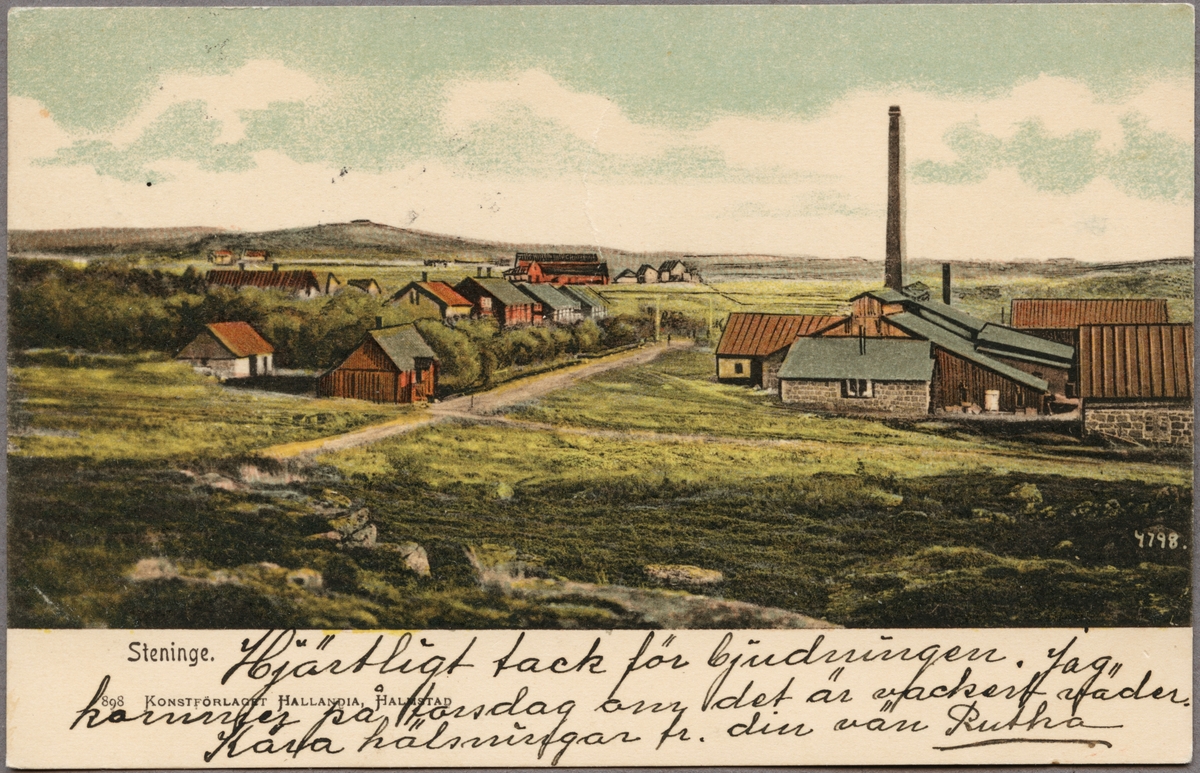 4798.
Steninge. Hjärtligt tack för bjudningen. Jag
898 KONSTFÖRLAGET HALLANDIA, HALMSTAD
kommer på torsdag om det är vackert väder.
Kära hälsningar fr. din vän Rutha